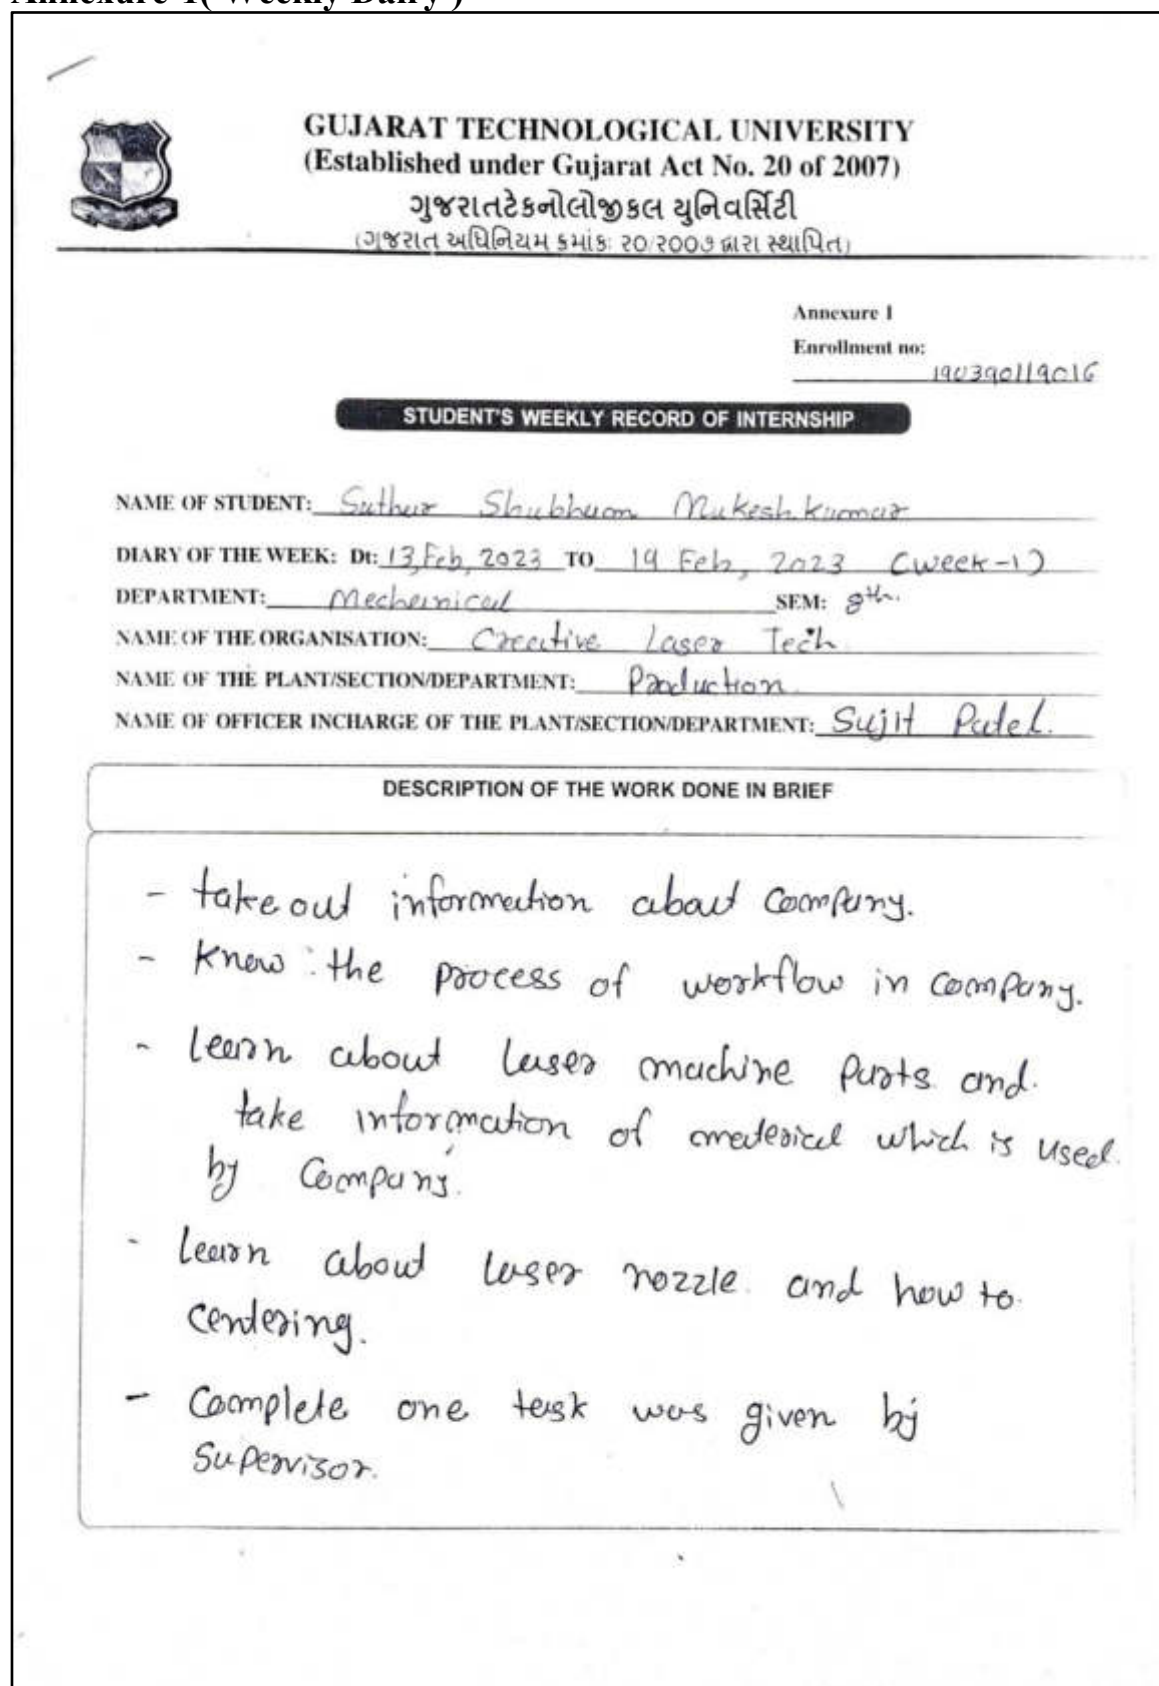 Annexure 1( Weekly Dairy )
GUJARAT TECHNOLOGICAL UNIVERSITY
(Established under Gujarat Act No. 20 of 2007)
ગુજરાતટેકનોલોજીકલ યુનિવર્સિટી
(ગુજરાત અધિનિયમ ક્રમાંક: ૨૦/૨૦૦૭ દ્વારા સ્થાપિત)
Annexure 1
Enrollment no:
190390119016
STUDENT'S WEEKLY RECORD OF INTERNSHIP
NAME OF STUDENT: Suthar Shubham Mukeshkumar
DIARY OF THE WEEK: Dt: 13, Feb, 2023 TO 19 Feb, 2023 (week-1)
DEPARTMENT: Mechanical SEM: 8th.
NAME OF THE ORGANISATION: Creative Laser Tech
NAME OF THE PLANT/SECTION/DEPARTMENT: Production
NAME OF OFFICER INCHARGE OF THE PLANT/SECTION/DEPARTMENT: Sujit Patel.
DESCRIPTION OF THE WORK DONE IN BRIEF
- take out information about Company.
- Know the process of workflow in company.
- learn about laser machine parts and
take information of material which is used
by Company.
- learn about laser nozzle and how to
centering.
- Complete one task was given by
Supervisor.